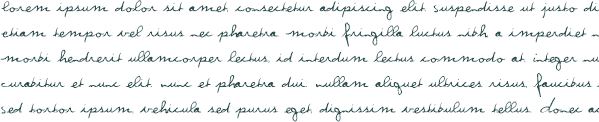 lorem ipsum dolor sit amet, consectetur adipiscing elit. suspendisse ut justo di
etiam tempor vel risus nec pharetra. morbi fringilla luctus nibh a imperdiet n
morbi hendrerit ullamcorper lectus, id interdum lectus commodo at. integer nu
curabitur et nunc elit. nunc et pharetra dui. nullam aliquet ultrices risus, faucibus.
sed tortor ipsum, vehicula sed purus eget, dignissim vestibulum tellus. Donec ac